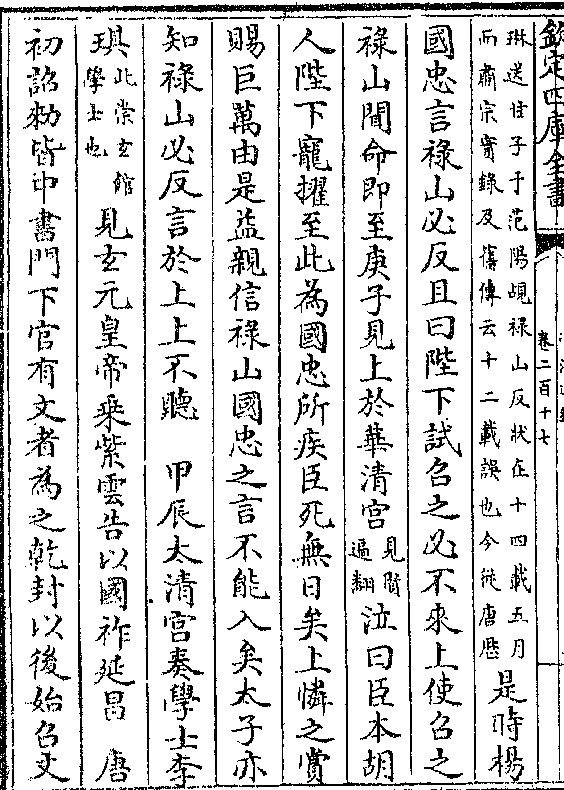 欽定四庫全書
卷二百十七
琳送甘子于范陽覘祿山反狀在十四載五月
而肅宗實錄及舊傳云十二載誤也今從唐歷
是時楊
國忠言祿山必反且曰陛下試召之必不來上使召之
祿山聞命即至庚子見上於華清宮見賢遍翻泣曰臣本胡
人陛下寵擢至此為國忠所疾臣死無日矣上憐之賞
賜巨萬由是益親信祿山國忠之言不能入矣太子亦
知祿山必反言於上上不聽 甲辰太清宮奏學士李
琪此崇玄館學士也見玄元皇帝乘紫雲告以國祚延昌 唐
初詔勅皆中書門下官有文者為之乾封以後始召文